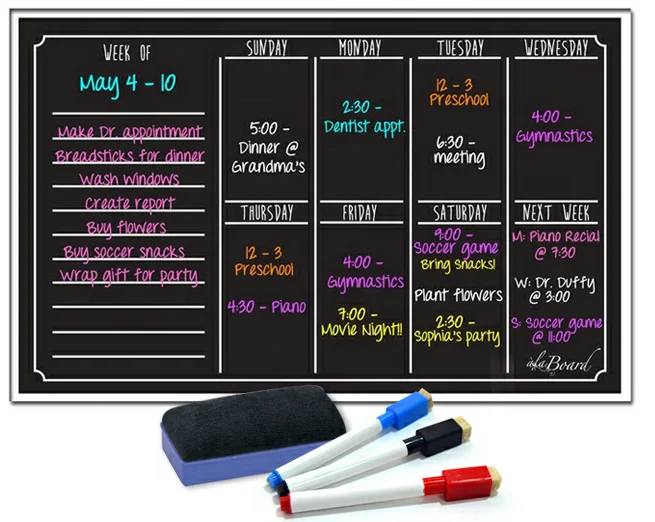 WEEK OF
May 4 - 10
Make Dr. appointment
Breadsticks for dinner
Wash windows
Create report
Buy flowers
Buy soccer snacks
Wrap gift for party
SUNDAY
5:00 -
Dinner @
Grandma's
MONDAY
2:30 -
Dentist appt.
TUESDAY
12 - 3
Preschool
6:30 -
meeting
WEDNESDAY
4:00 -
Gymnastics
THURSDAY
12 - 3
Preschool
4:30 - Piano
FRIDAY
4:00 -
Gymnastics
7:00 -
Movie Night!!
SATURDAY
9:00 -
Soccer game
Bring Snacks!
Plant flowers
2:30 -
Sophia's party
NEXT WEEK
M: Piano Recial
@ 7:30
W: Dr. Duffy
@ 3:00
S: Soccer game
@ 11:00
àlaBoard